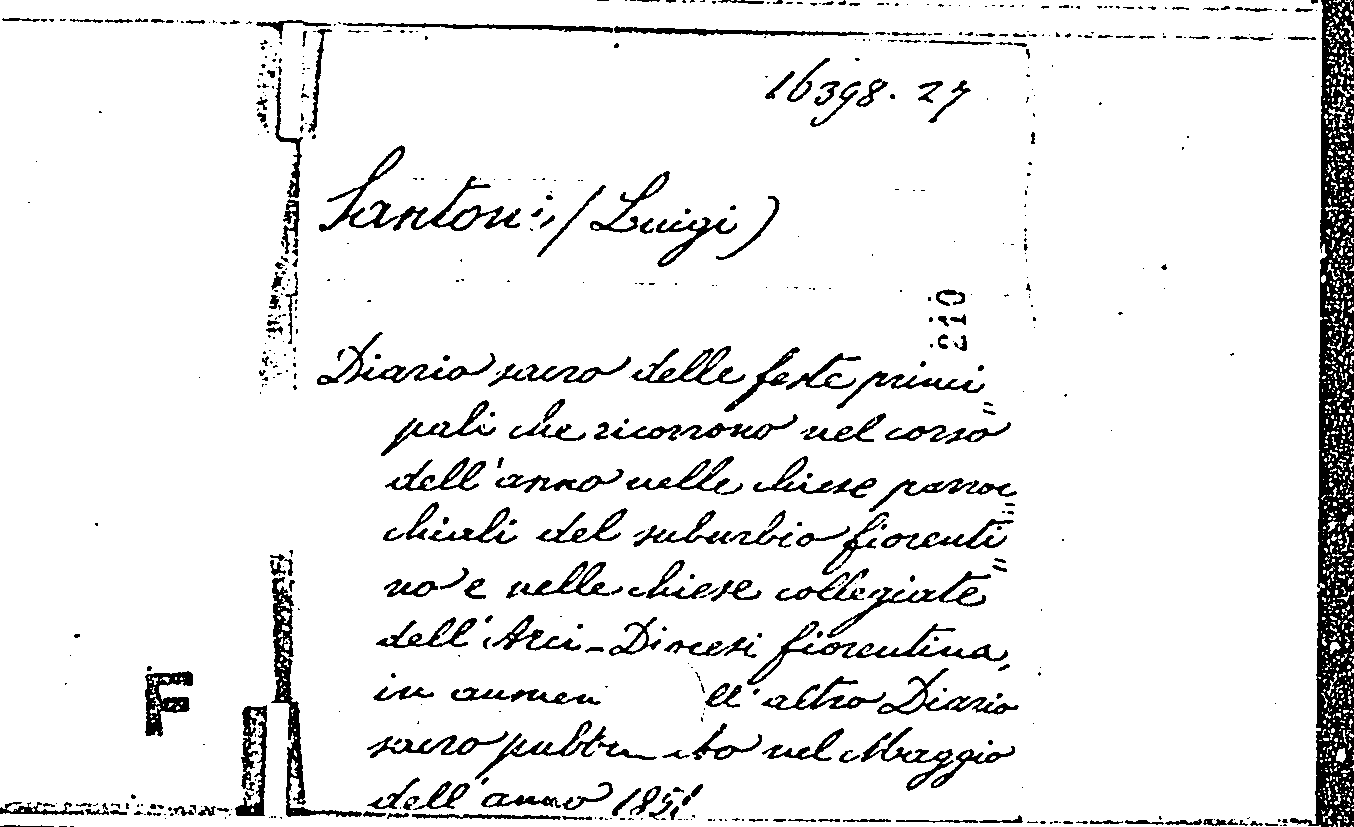 16398.27
Santoni, (Luigi)
210
Diario sacro delle feste princi=
pali che ricorrono nel corso
dell'anno nelle chiese parroc=
chiali del suburbio fiorenti=
no e nelle chiese collegiate
dell'Arci-Diocesi fiorentina,
in aumen ll'altro Diario
sacro nel Maggio
dell'anno
F